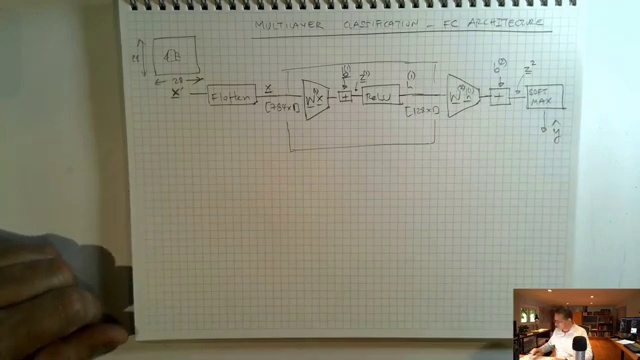 MULTILAYER CLASSIFICATION - FC ARCHITECTURE
28
28
X'
Flatten
x
[784x1]
W⁽¹⁾x
b⁽¹⁾
+
z⁽¹⁾
ReLU
(1)
[128x1]
b⁽²⁾
+
z²
SOFT
MAX
ŷ